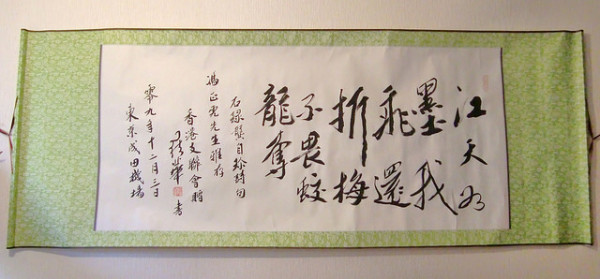 江天如
墨我
飛還
折梅
不畏蛟
龍奪
右錄龔自珍詩句
馮正虎先生雅存
香港支聯會贈
華 書
零九年十二月三日
東京成田機場